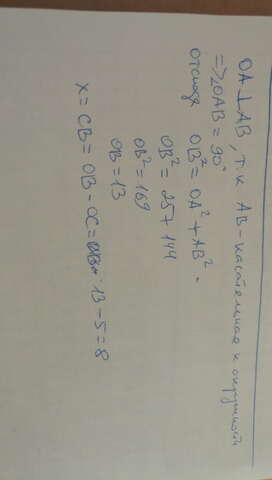 OA⊥AB, т.к AB-касательная к окружности
=>∠OAB = 90°
отсюда OB² = OA² + AB².
OB² = 25 + 144
OB² = 169
OB = 13
x = CB = OB - OC = 13 - 5 = 8